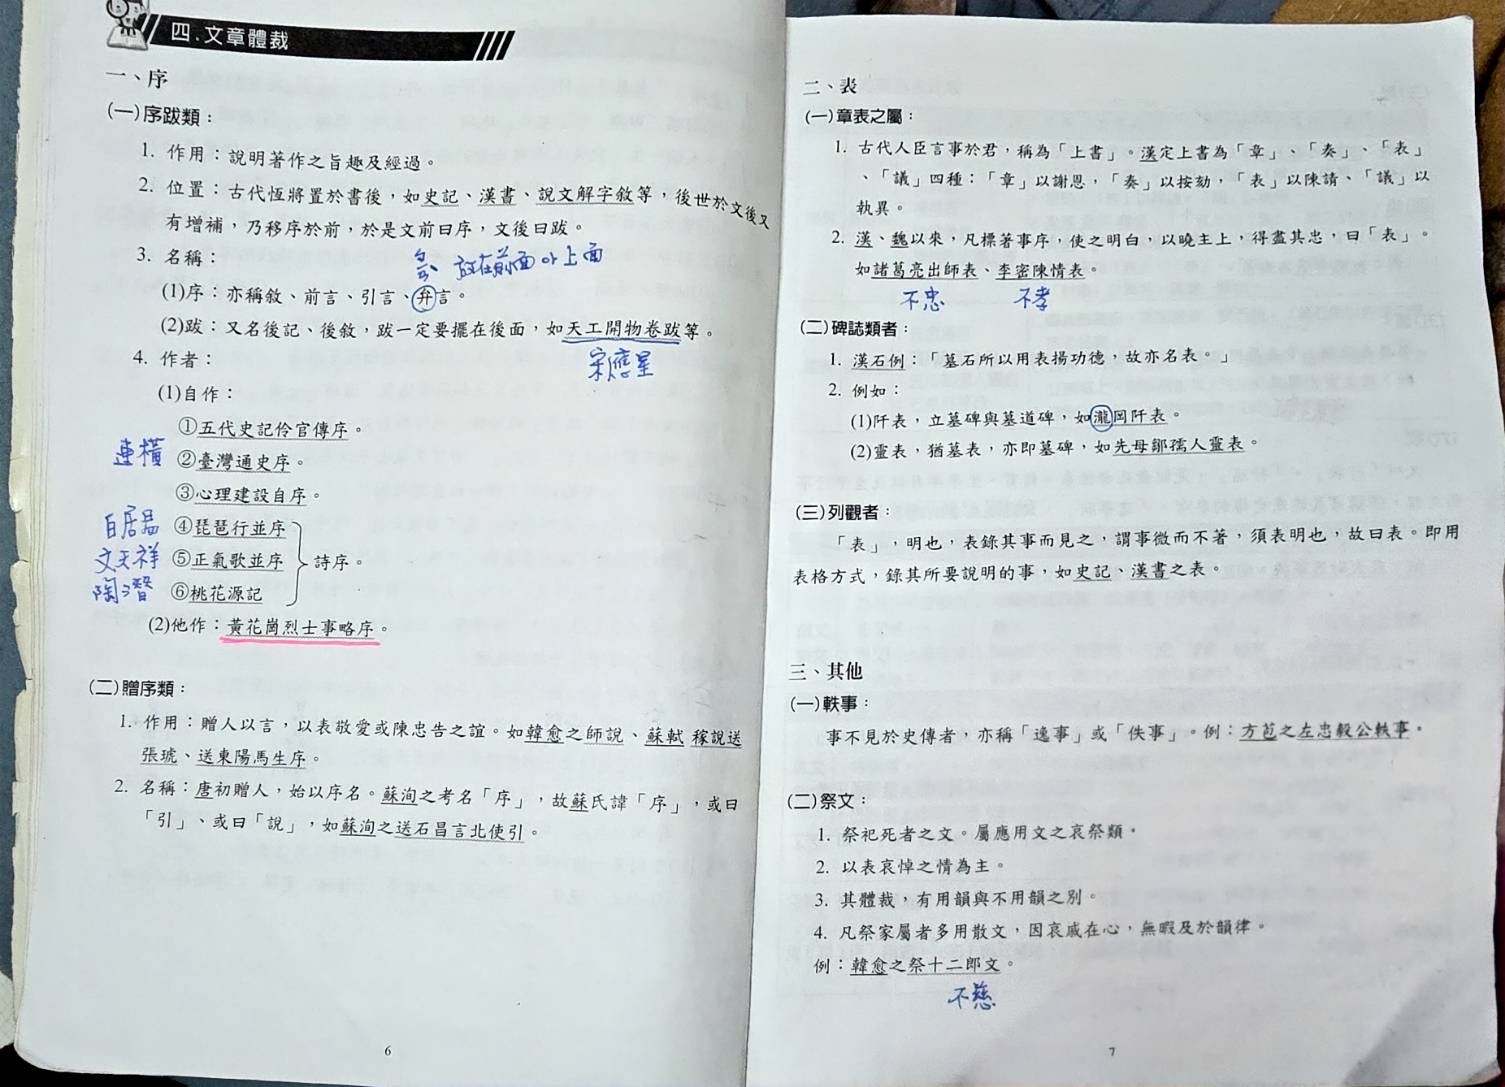 四.文章體裁
一、序
(一)序跋類：
1. 作用：說明著作之旨趣及經過。
2. 位置：古代恆將置於書後，如史記、漢書、說文解字敘等，後世於文後又
有增補，乃移序於前，於是文前曰序，文後曰跋。
3. 名稱：
放在前面or上面
(1)序：亦稱敘、前言、引言、弁言。
(2)跋：又名後記、後敘，跋一定要擺在後面，如天工開物卷跋等。
宋應星
4. 作者：
(1)自作：
①五代史記伶官傳序。
連橫 ②臺灣通史序。
③心理建設自序。
白居易 ④琵琶行並序
文天祥 ⑤正氣歌並序 詩序。
陶潛 ⑥桃花源記
(2)他作：黃花崗烈士事略序。
(二)贈序類：
1. 作用：贈人以言，以表敬愛或陳忠告之誼。如韓愈之師說、蘇軾 稼說送
張琥、送東陽馬生序。
2. 名稱：唐初贈人，始以序名。蘇洵之考名「序」，故蘇氏諱「序」，或曰
「引」、或曰「說」，如蘇洵之送石昌言北使引。
6
二、表
(一)章表之屬：
1. 古代人臣言事於君，稱為「上書」。漢定上書為「章」、「奏」、「表」
、「議」四種：「章」以謝恩，「奏」以按劾，「表」以陳請、「議」以
執異。
2. 漢、魏以來，凡標著事序，使之明白，以曉主上，得盡其忠，曰「表」。
如諸葛亮出師表、李密陳情表。
不忠 不孝
(二)碑誌類者：
1. 漢石例：「墓石所以用表揚功德，故亦名表。」
2. 例如：
(1)阡表，立墓碑與墓道碑，如瀧岡阡表。
(2)靈表，猶墓表，亦即墓碑，如先母鄒孺人靈表。
(三)列觀者：
「表」，明也，表錄其事而見之，謂事微而不著，須表明也，故曰表。即用
表格方式，錄其所要說明的事，如史記、漢書之表。
三、其他
(一)軼事：
事不見於史傳者，亦稱「逸事」或「佚事」。例：方苞之左忠毅公軼事。
(二)祭文：
1. 祭祀死者之文。屬應用文之哀祭類。
2. 以表哀悼之情為主。
3. 其體裁，有用韻與不用韻之別。
4. 凡祭家屬者多用散文，因哀戚在心，無暇及於韻律。
例：韓愈之祭十二郎文。
不慈
7